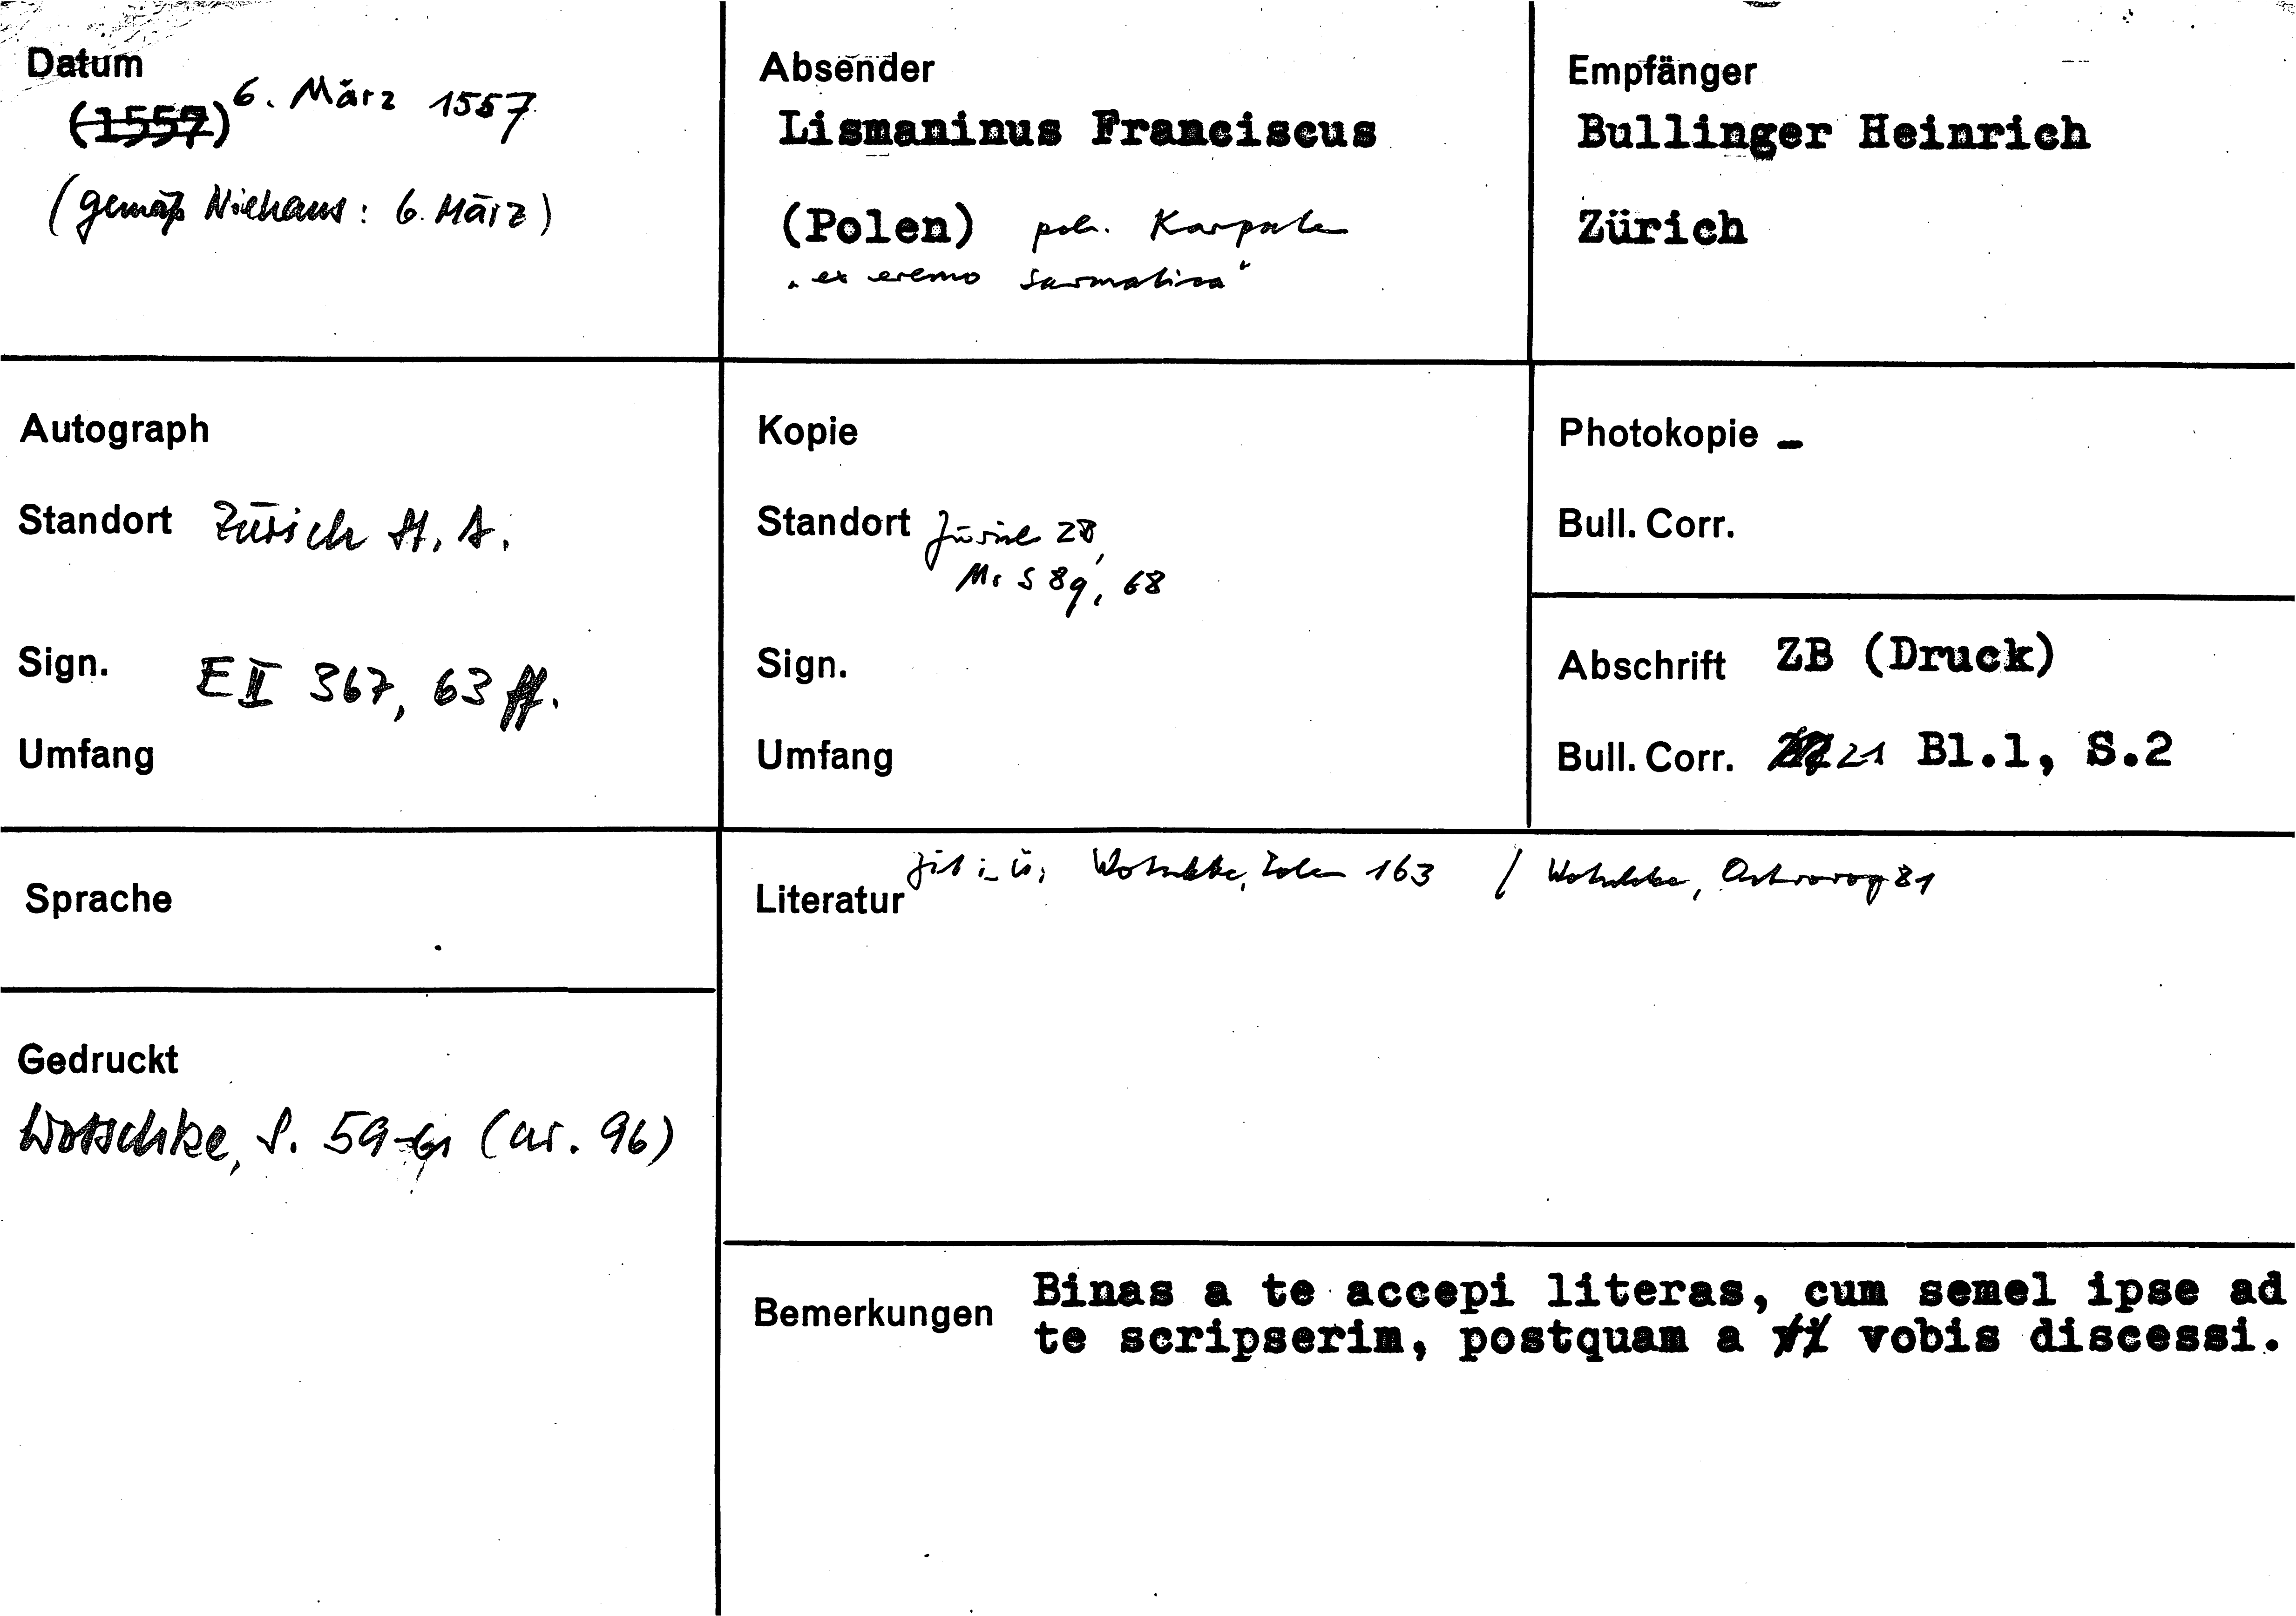 Datum
(1557) 6. März 1557
(gemäß Niehaus: 6. März)
Absender
Lismaninus Franciscus
(Polen) poln. Karpaten
"ex eremo sarmatica"
Empfänger
Bullinger Heinrich
Zürich
Autograph
Standort Zürich St. A.
Sign. E II 367, 63 ff.
Umfang
Kopie
Standort Zürich ZB,
Ms S 89, 68
Sign.
Umfang
Photokopie -
Bull. Corr.
Abschrift ZB (Druck)
Bull. Corr. 21 Bl.1, S.2
Sprache
Gedruckt
Wotschke, S. 59-61 (nr. 96)
Literatur Wotschke, Polen 163 / Wotschke, Ostrorog 81
Bemerkungen Binas a te accepi literas, cum semel ipse ad
te scripserim, postquam a vobis discessi.